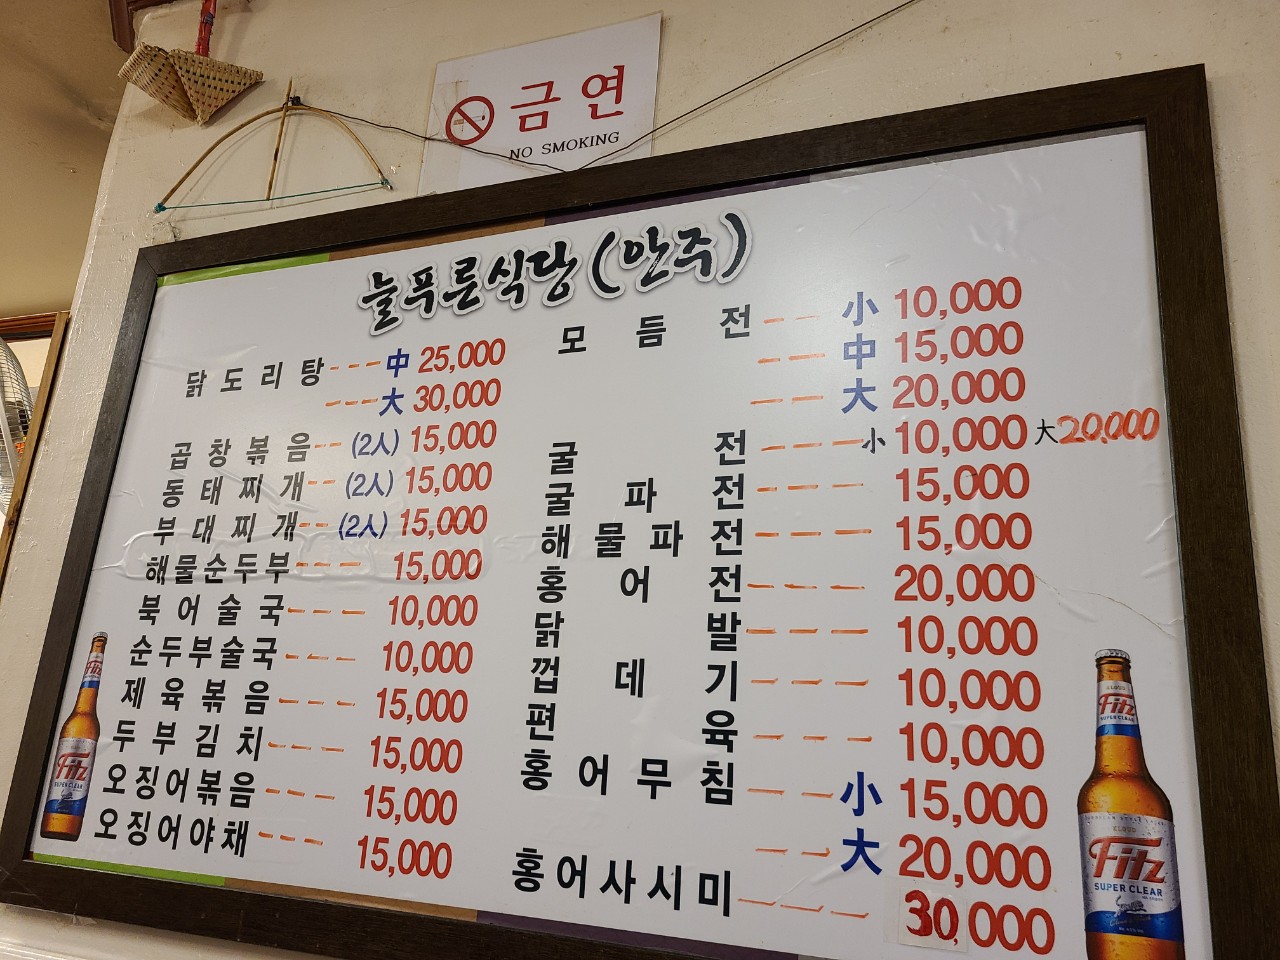 금연
NO SMOKING
늘푸른식당(안주)
닭도리탕---中 25,000
---大 30,000
곱창볶음--(2人) 15,000
동태찌개--(2人) 15,000
부대찌개--(2人) 15,000
해물순두부--- 15,000
북어술국--- 10,000
순두부술국--- 10,000
제육볶음--- 15,000
두부김치--- 15,000
오징어볶음--- 15,000
오징어야채--- 15,000
모듬전-- 小 10,000
-- 中 15,000
-- 大 20,000
굴전---小 10,000 大20.000
굴파전--- 15,000
해물파전--- 15,000
홍어전--- 20,000
닭발--- 10,000
껍데기--- 10,000
편육--- 10,000
홍어무침--小 15,000
--大 20,000
홍어사시미--- 30,000
Fitz
SUPER CLEAR
KLOUD
Fitz
SUPER CLEAR
KLOUD
Fitz
SUPER CLEAR